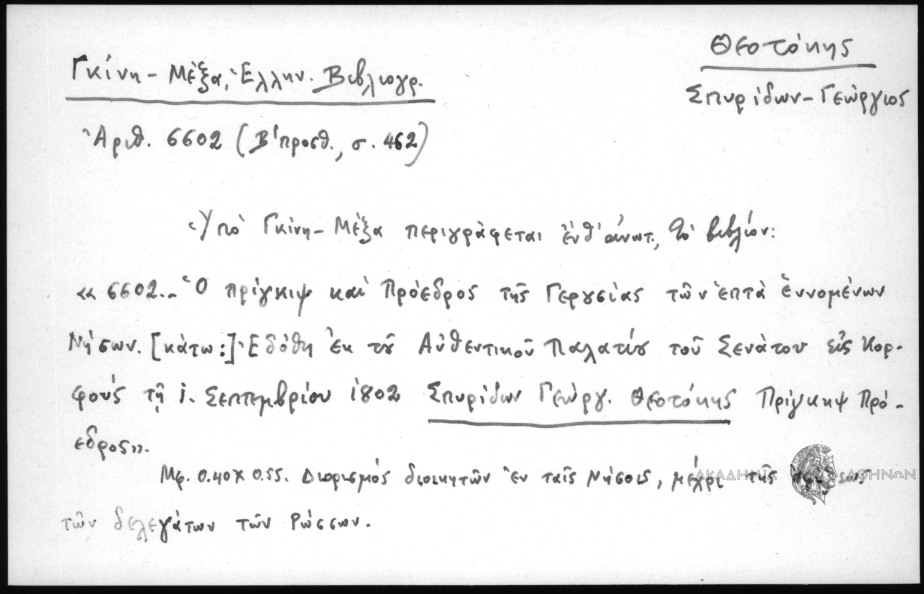 Θεοτόκης
Γκίνη - Μέξα, Ἑλλην. Βιβλιογρ.
Σπυρίδων - Γεώργιος
Ἀριθ. 6602 (Β' προσθ., σ. 462)
Ὑπὸ Γκίνη - Μέξα περιγράφεται ἐνθ' ἀνωτ., τὸ βιβλίον:
« 6602.- Ὁ πρίγκιψ καὶ Πρόεδρος τῆς Γερουσίας τῶν ἑπτὰ ἑννομένων
Νήσων. [κάτω:] Ἐδόθη ἐκ τοῦ Αὐθεντικοῦ Παλατίου τοῦ Σενάτου εἰς Κορ-
φοὺς τῇ 1. Σεπτεμβρίου 1802 Σπυρίδων Γεώργ. Θεοτόκης Πρίγκηψ Πρό-
εδρος».
Μφ. 0.40 Χ 0.55. Διορισμὸς διοικητῶν ἐν ταῖς Νήσοις, μέχρι τῆς
τῶν δελεγάτων τῶν Ρώσσων.
ΑΚΑΔΗΜΙΑ ΑΘΗΝΩΝ